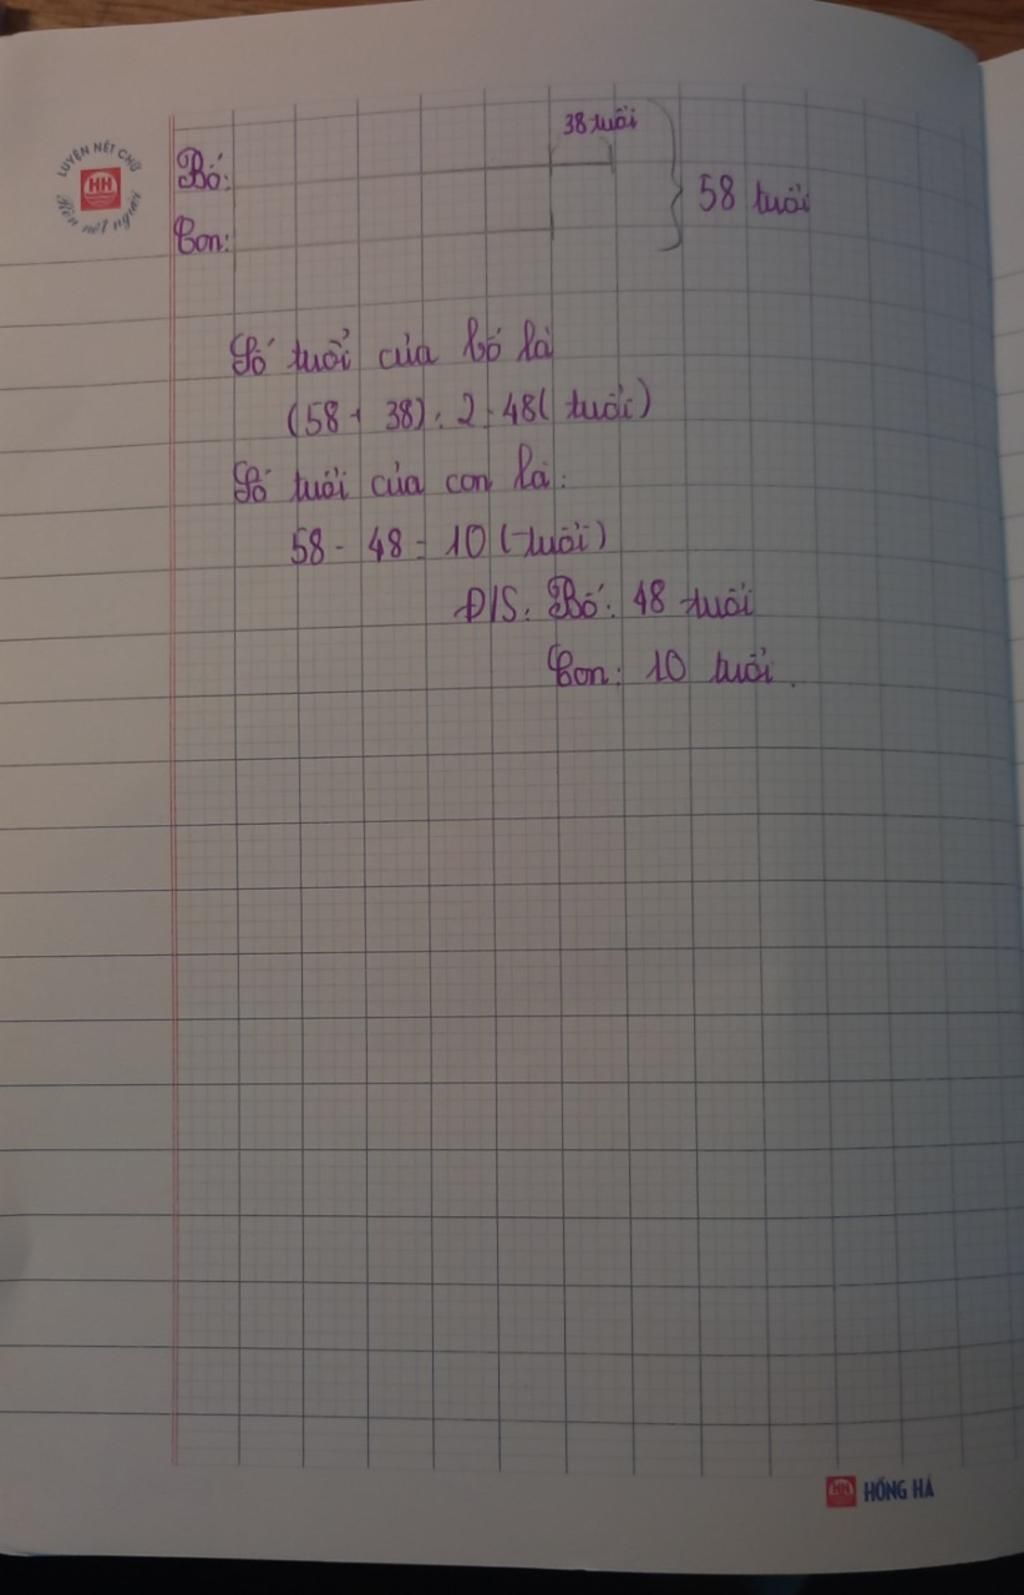 LUYỆN NÉT CHỮ
HH
Rèn nét người
38 tuổi
Bố:
58 tuổi
Con:
Số tuổi của bố là
(58 + 38) : 2 = 48 ( tuổi )
Số tuổi của con là :
58 - 48 = 10 ( tuổi )
Đ/S : Bố : 48 tuổi
Con : 10 tuổi .
HH HỒNG HÀ